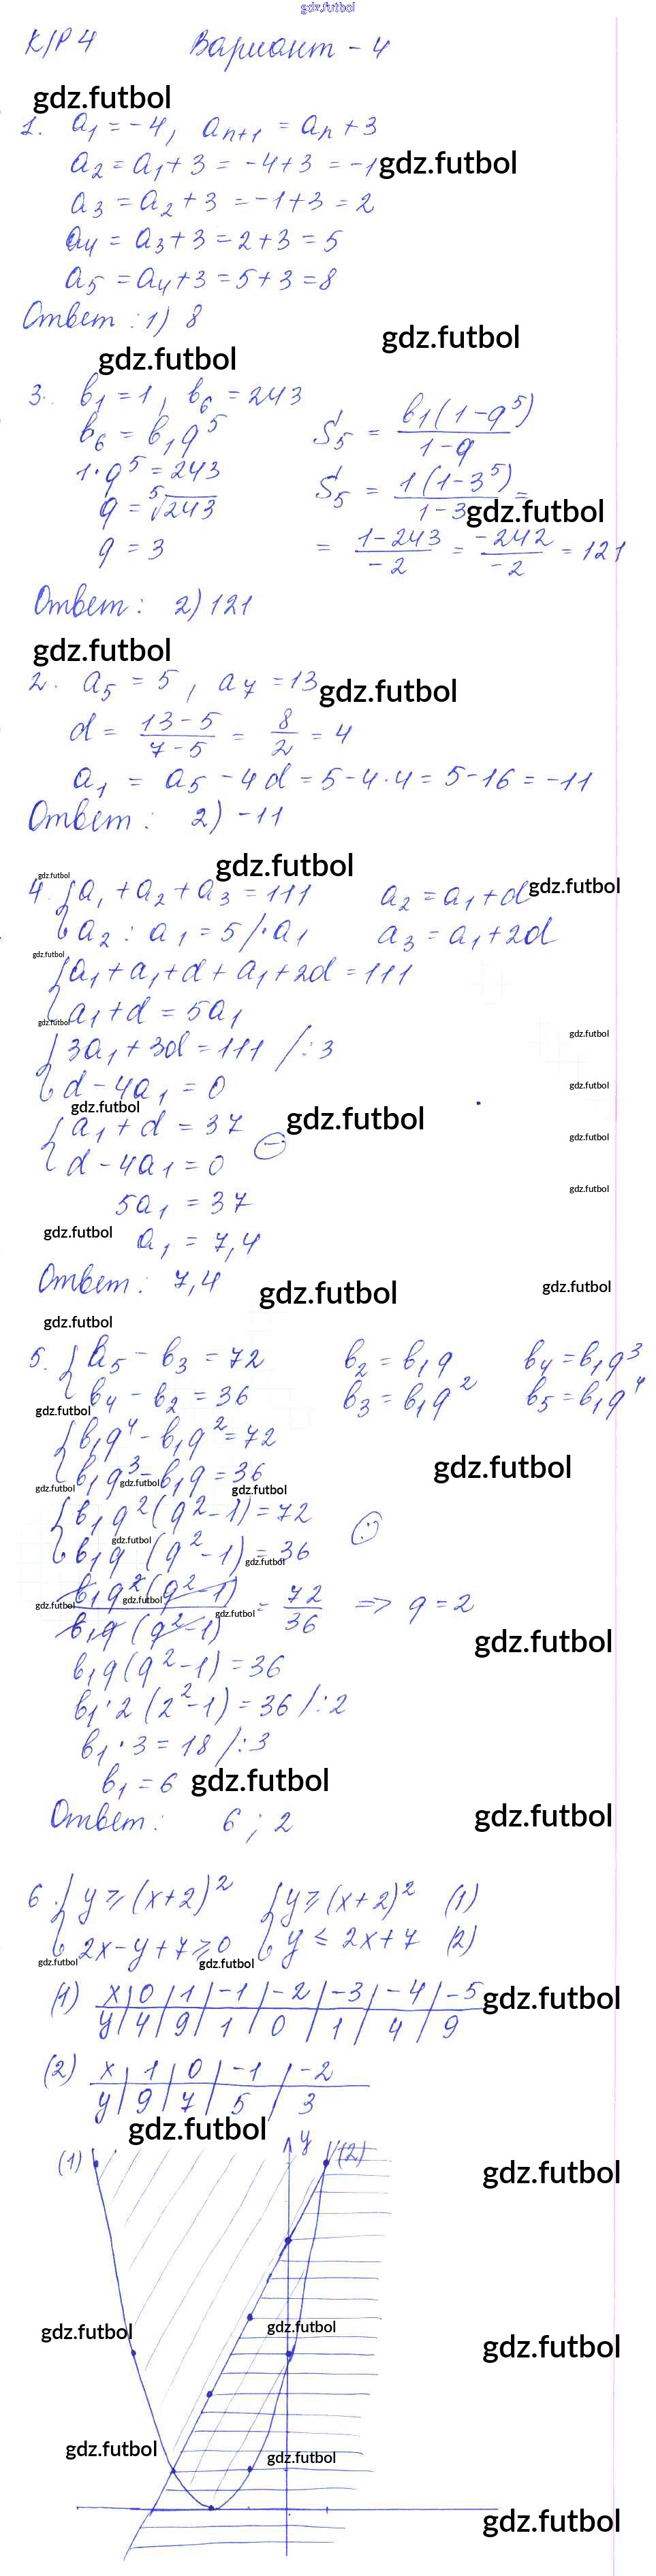 gdz.futbol
К/Р 4 Вариант - 4
gdz.futbol
1. a₁ = -4, aₙ₊₁ = aₙ + 3
a₂ = a₁ + 3 = -4 + 3 = -1 gdz.futbol
a₃ = a₂ + 3 = -1 + 3 = 2
a₄ = a₃ + 3 = 2 + 3 = 5
a₅ = a₄ + 3 = 5 + 3 = 8
Ответ: 1) 8 gdz.futbol
gdz.futbol
3. b₁ = 1, b₆ = 243
b₆ = b₁q⁵ S₅ = b₁(1-q⁵)/(1-q)
1·q⁵ = 243
q = ⁵√243 S₅ = 1(1-3⁵)/(1-3) = gdz.futbol
q = 3 = (1-243)/(-2) = -242/-2 = 121
Ответ: 2) 121
gdz.futbol
2. a₅ = 5, a₇ = 13 gdz.futbol
d = (13-5)/(7-5) = 8/2 = 4
a₁ = a₅ - 4d = 5 - 4·4 = 5 - 16 = -11
Ответ: 2) -11
gdz.futbol gdz.futbol
4. { a₁ + a₂ + a₃ = 111 a₂ = a₁ + d gdz.futbol
a₂ : a₁ = 5 /·a₁ a₃ = a₁ + 2d
gdz.futbol
{ a₁ + a₁ + d + a₁ + 2d = 111
a₁ + d = 5a₁
gdz.futbol gdz.futbol
{ 3a₁ + 3d = 111 /:3
d - 4a₁ = 0 gdz.futbol
gdz.futbol gdz.futbol
{ a₁ + d = 37 (-) gdz.futbol
d - 4a₁ = 0
5a₁ = 37 gdz.futbol
gdz.futbol a₁ = 7,4
Ответ: 7,4 gdz.futbol gdz.futbol
gdz.futbol
5. { b₅ - b₃ = 72 b₂ = b₁q b₄ = b₁q³
b₄ - b₂ = 36 b₃ = b₁q² b₅ = b₁q⁴
gdz.futbol
{ b₁q⁴ - b₁q² = 72
b₁q³ - b₁q = 36 gdz.futbol
gdz.futbol gdz.futbol gdz.futbol
{ b₁q²(q²-1) = 72 (:)
gdz.futbol
b₁q (q²-1) = 36
gdz.futbol
b₁q²(q²-1)/b₁q(q²-1) = 72/36 => q = 2
gdz.futbol gdz.futbol gdz.futbol
gdz.futbol
b₁q(q²-1) = 36
b₁·2(2²-1) = 36 /:2
b₁·3 = 18 /:3
b₁ = 6 gdz.futbol
Ответ: 6; 2 gdz.futbol
6. { y ≥ (x+2)² { y ≥ (x+2)² (1)
2x - y + 7 ≥ 0 y ≤ 2x + 7 (2)
gdz.futbol gdz.futbol
(1) x | 0 | 1 | -1 | -2 | -3 | -4 | -5 gdz.futbol
y | 4 | 9 | 1 | 0 | 1 | 4 | 9
(2) x | 1 | 0 | -1 | -2
y | 9 | 7 | 5 | 3
gdz.futbol
(1) y (2)
gdz.futbol
gdz.futbol gdz.futbol
gdz.futbol
gdz.futbol gdz.futbol
gdz.futbol